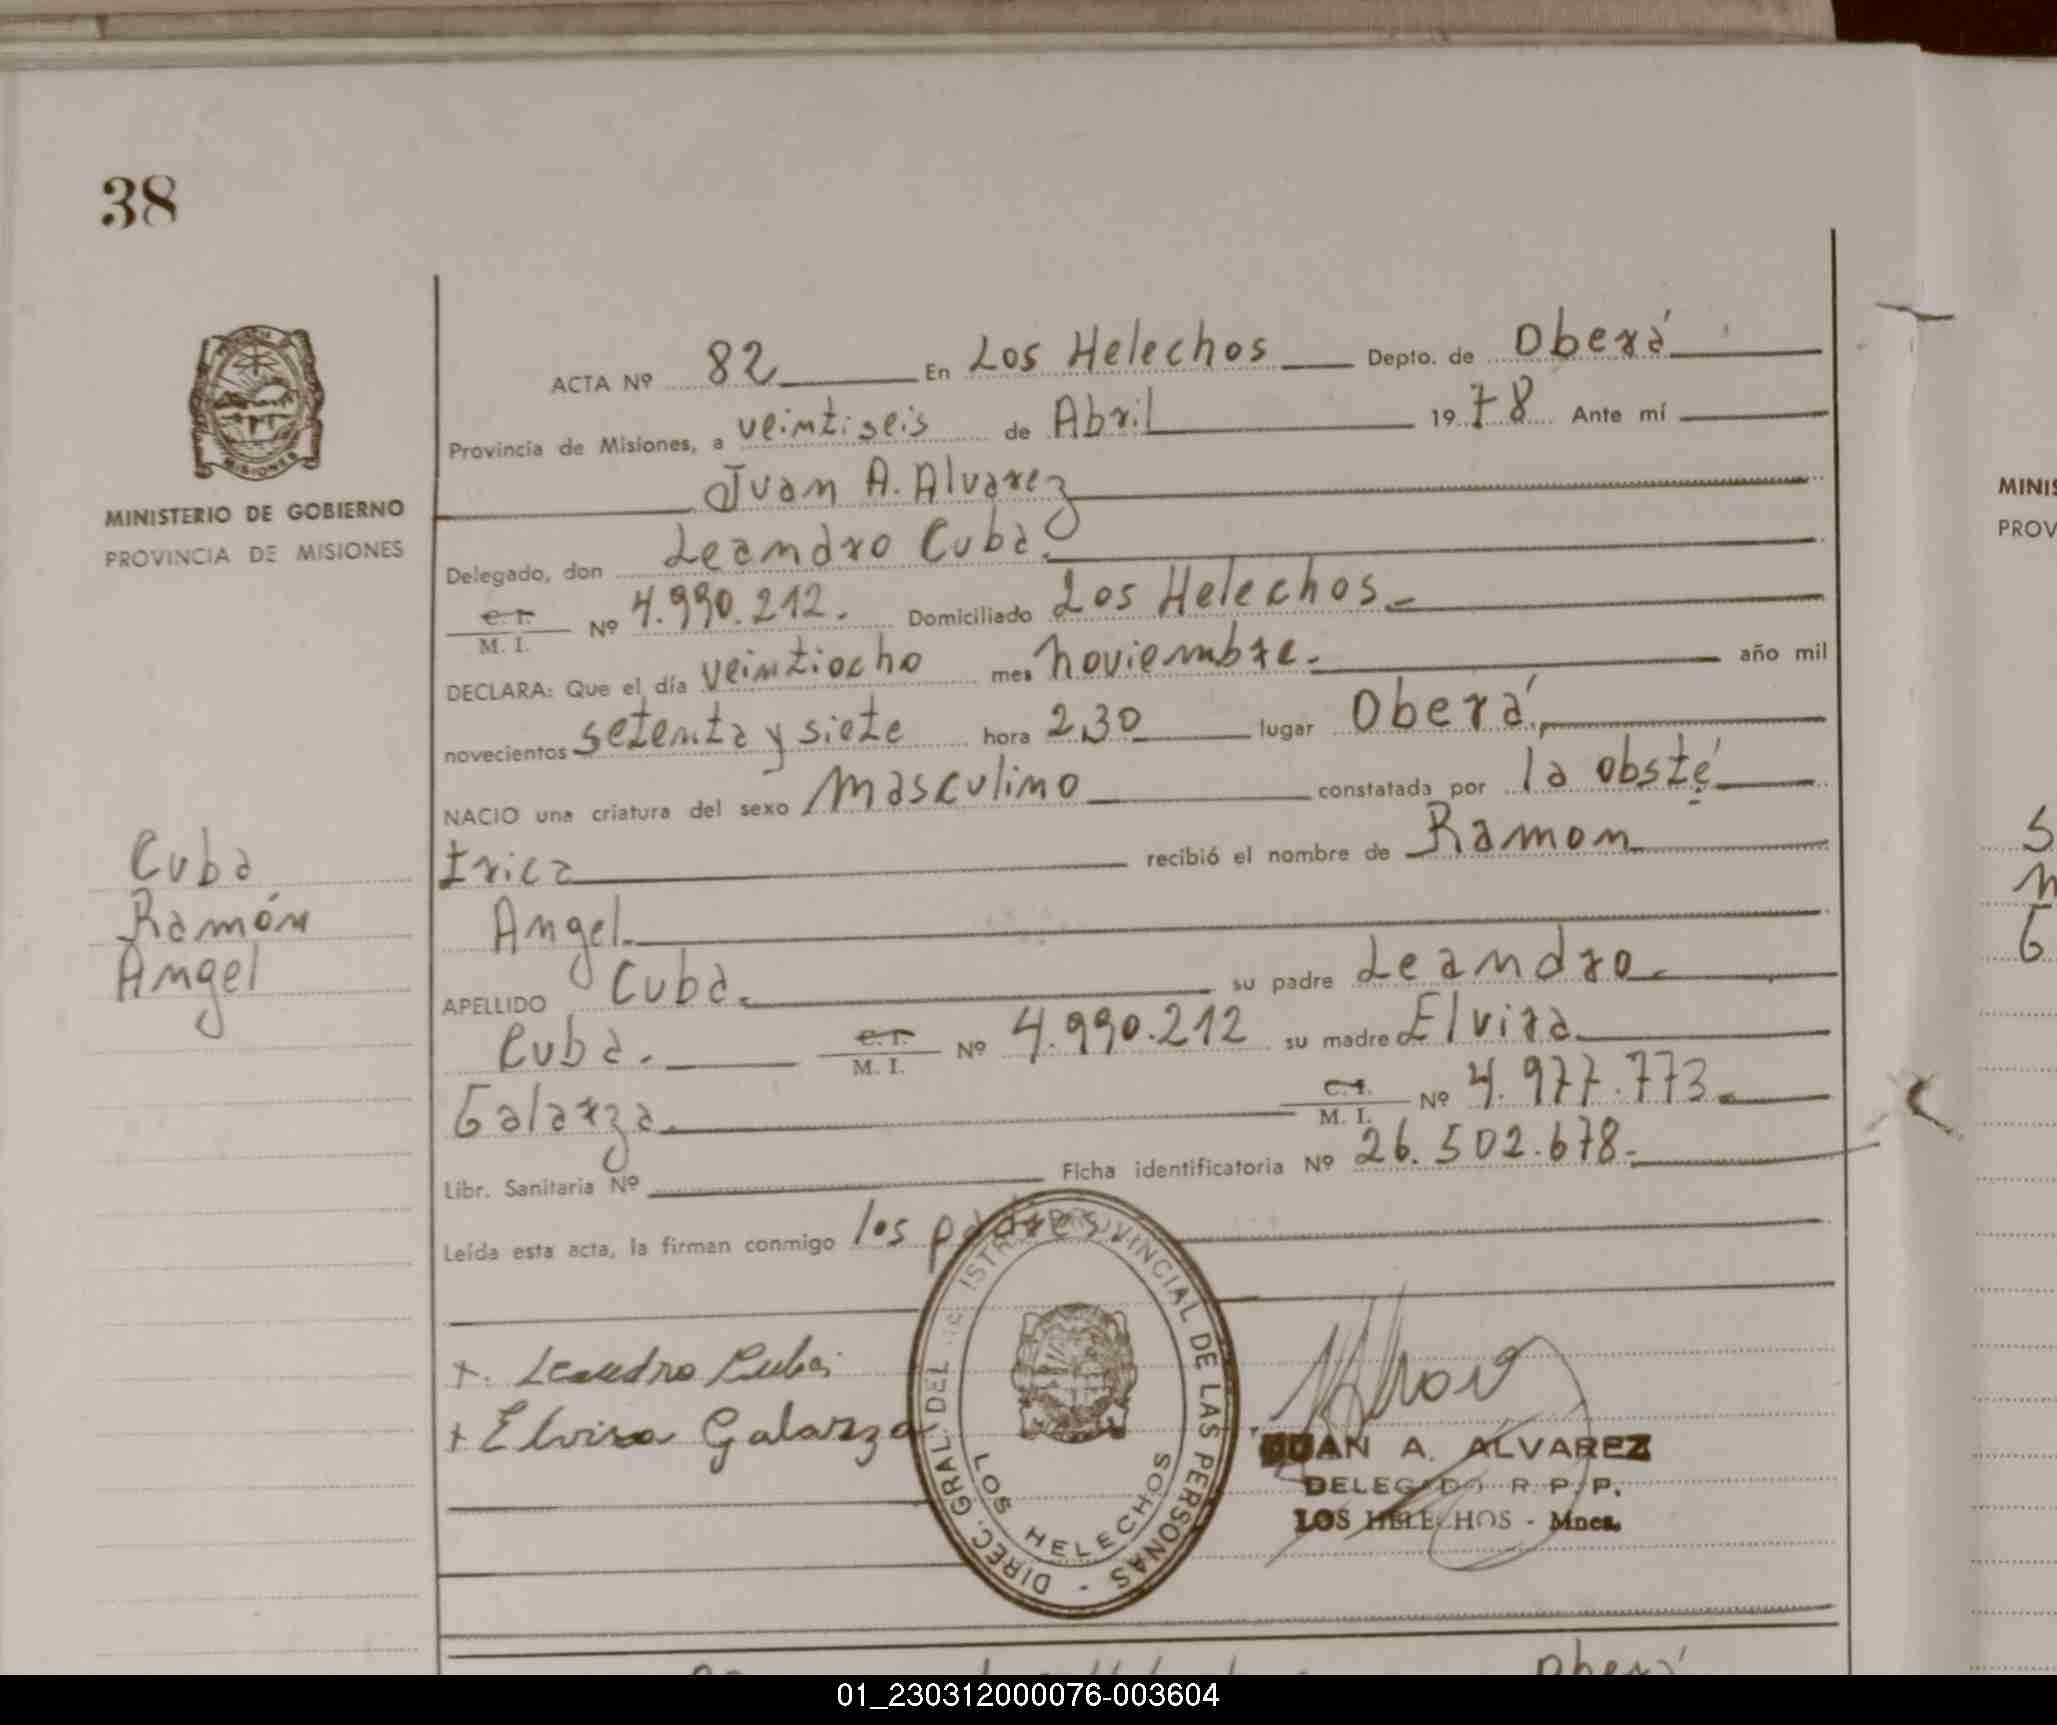 38
MINISTERIO DE GOBIERNO
PROVINCIA DE MISIONES
MISIONES
Cuba
Ramón
Angel
ACTA Nº 82 En Los Helechos Depto. de Oberá
Provincia de Misiones, a veintiseis de Abril 1978 Ante mí
Juan A. Alvarez
Delegado, don Leandro Cuba.
C. I. M. I. Nº 4.990.212. Domiciliado Los Helechos.
DECLARA: Que el día veintiocho mes noviembre. año mil
novecientos setenta y siete hora 2,30 lugar Oberá
NACIO una criatura del sexo Masculino constatada por la obsté
trica recibió el nombre de Ramon
Angel.
APELLIDO Cuba. su padre Leandro.
Cuba. C. I. M. I. Nº 4.990.212 su madre Elvira
Galarza. C. I. M. I. Nº 4.977.773.
Libr. Sanitaria Nº Ficha identificatoria Nº 26.502.678.
Leída esta acta, la firman conmigo los padres
+. Leandro Cuba
+ Elvira Galarza
DIREC. GRAL. DEL VINCIAL DE LAS PERSONAS -
LOS HELECHOS
JUAN A. ALVAREZ
DELEGADO R. P. P.
LOS HELECHOS - Mnes.
Oberá
MINIS
PROV
01_230312000076-003604